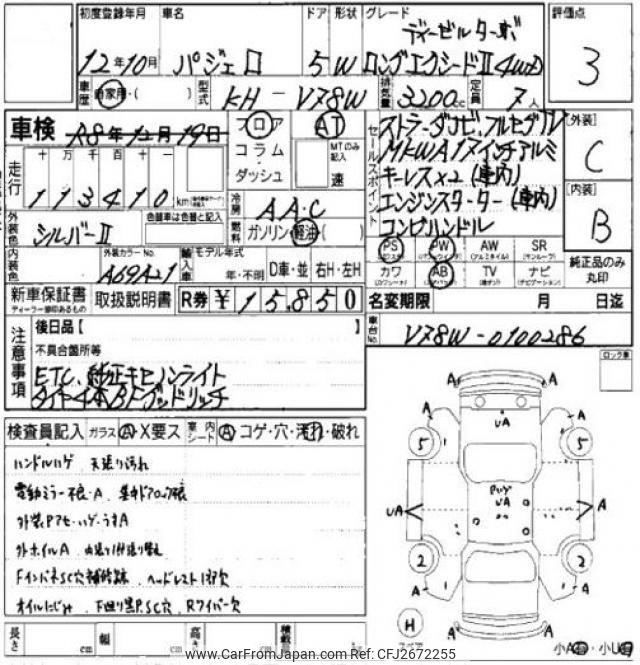 初度登録年月 車名 ドア 形状 グレード 評価点
ディーゼルターボ
12年10月 パジェロ 5 W ロングエクシードII 4WD 3
車歴 自家用・( ) 型式 KH-V78W 排気量 3200cc 定員 7人
車検 R8年12月19日 フロア AT
コラム MTのみ記入
ダッシュ 速
セールスポイント
ストラーダナビ、フルセグTV
MKWA17インチアルミ
キーレスx2 (車内)
エンジンスターター (車内)
コンビハンドル
[外装] C
[内装] B
走行 十 万 千 百 十 一
113410 km
冷房 AAC
燃料 ガソリン・軽油・( )
外装色 シルバーII 色替車は色替と記入
内装色 外装カラーNo. A69A21
輸入車 モデル年式 年・不明 D車・並 右H・左H
PS PW AW SR
(パワステ) (パワーウィンド) (アルミホイル) (サンルーフ)
カワ AB TV ナビ
(カワシート) (エアバッグ)
純正品のみ丸印
新車保証書 取扱説明書 R券 ¥15,850
ディーラー捺印あるもの
名変期限 月 日迄
車台No. V78W-0100286
注意事項
後日品【
不具合箇所等
ETC、純正キセノンライト
タイヤ4本BFグッドリッチ
ロック車
検査員記入 ガラス A・X要ス 室内シート A コゲ・穴・汚れ・破れ
ハンドルハゲ 天張り汚れ
電動ミラー不良・A
外装Pアセ・ハゲ・うすA
外ホイルA
FインパネSC穴補修跡、ヘッドレスト1部欠
オイルにじみ 下廻り黒P.SC穴、Rワイパー欠
A A
UA
A A
5 5
A A
Pハゲ
UA
UA A
2 2
A A
A A
H
スペア
小A・小U
長さ cm 幅 cm 高さ cm 積載量
www.CarFromJapan.com Ref: CFJ2672255